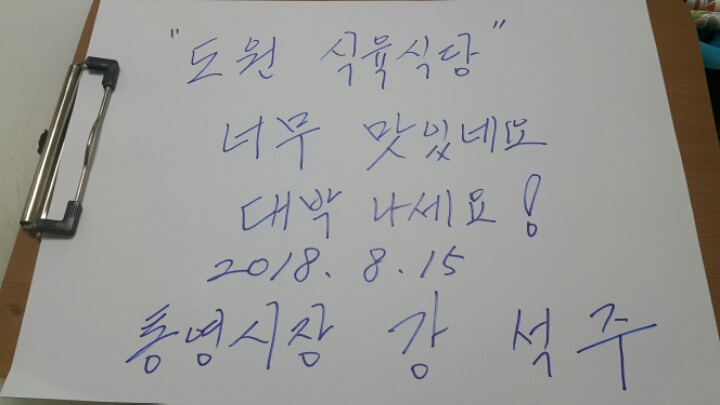 "도원 식육식당"
너무 맛있네요
대박 나세요!
2018. 8. 15
통영시장 강 석 주